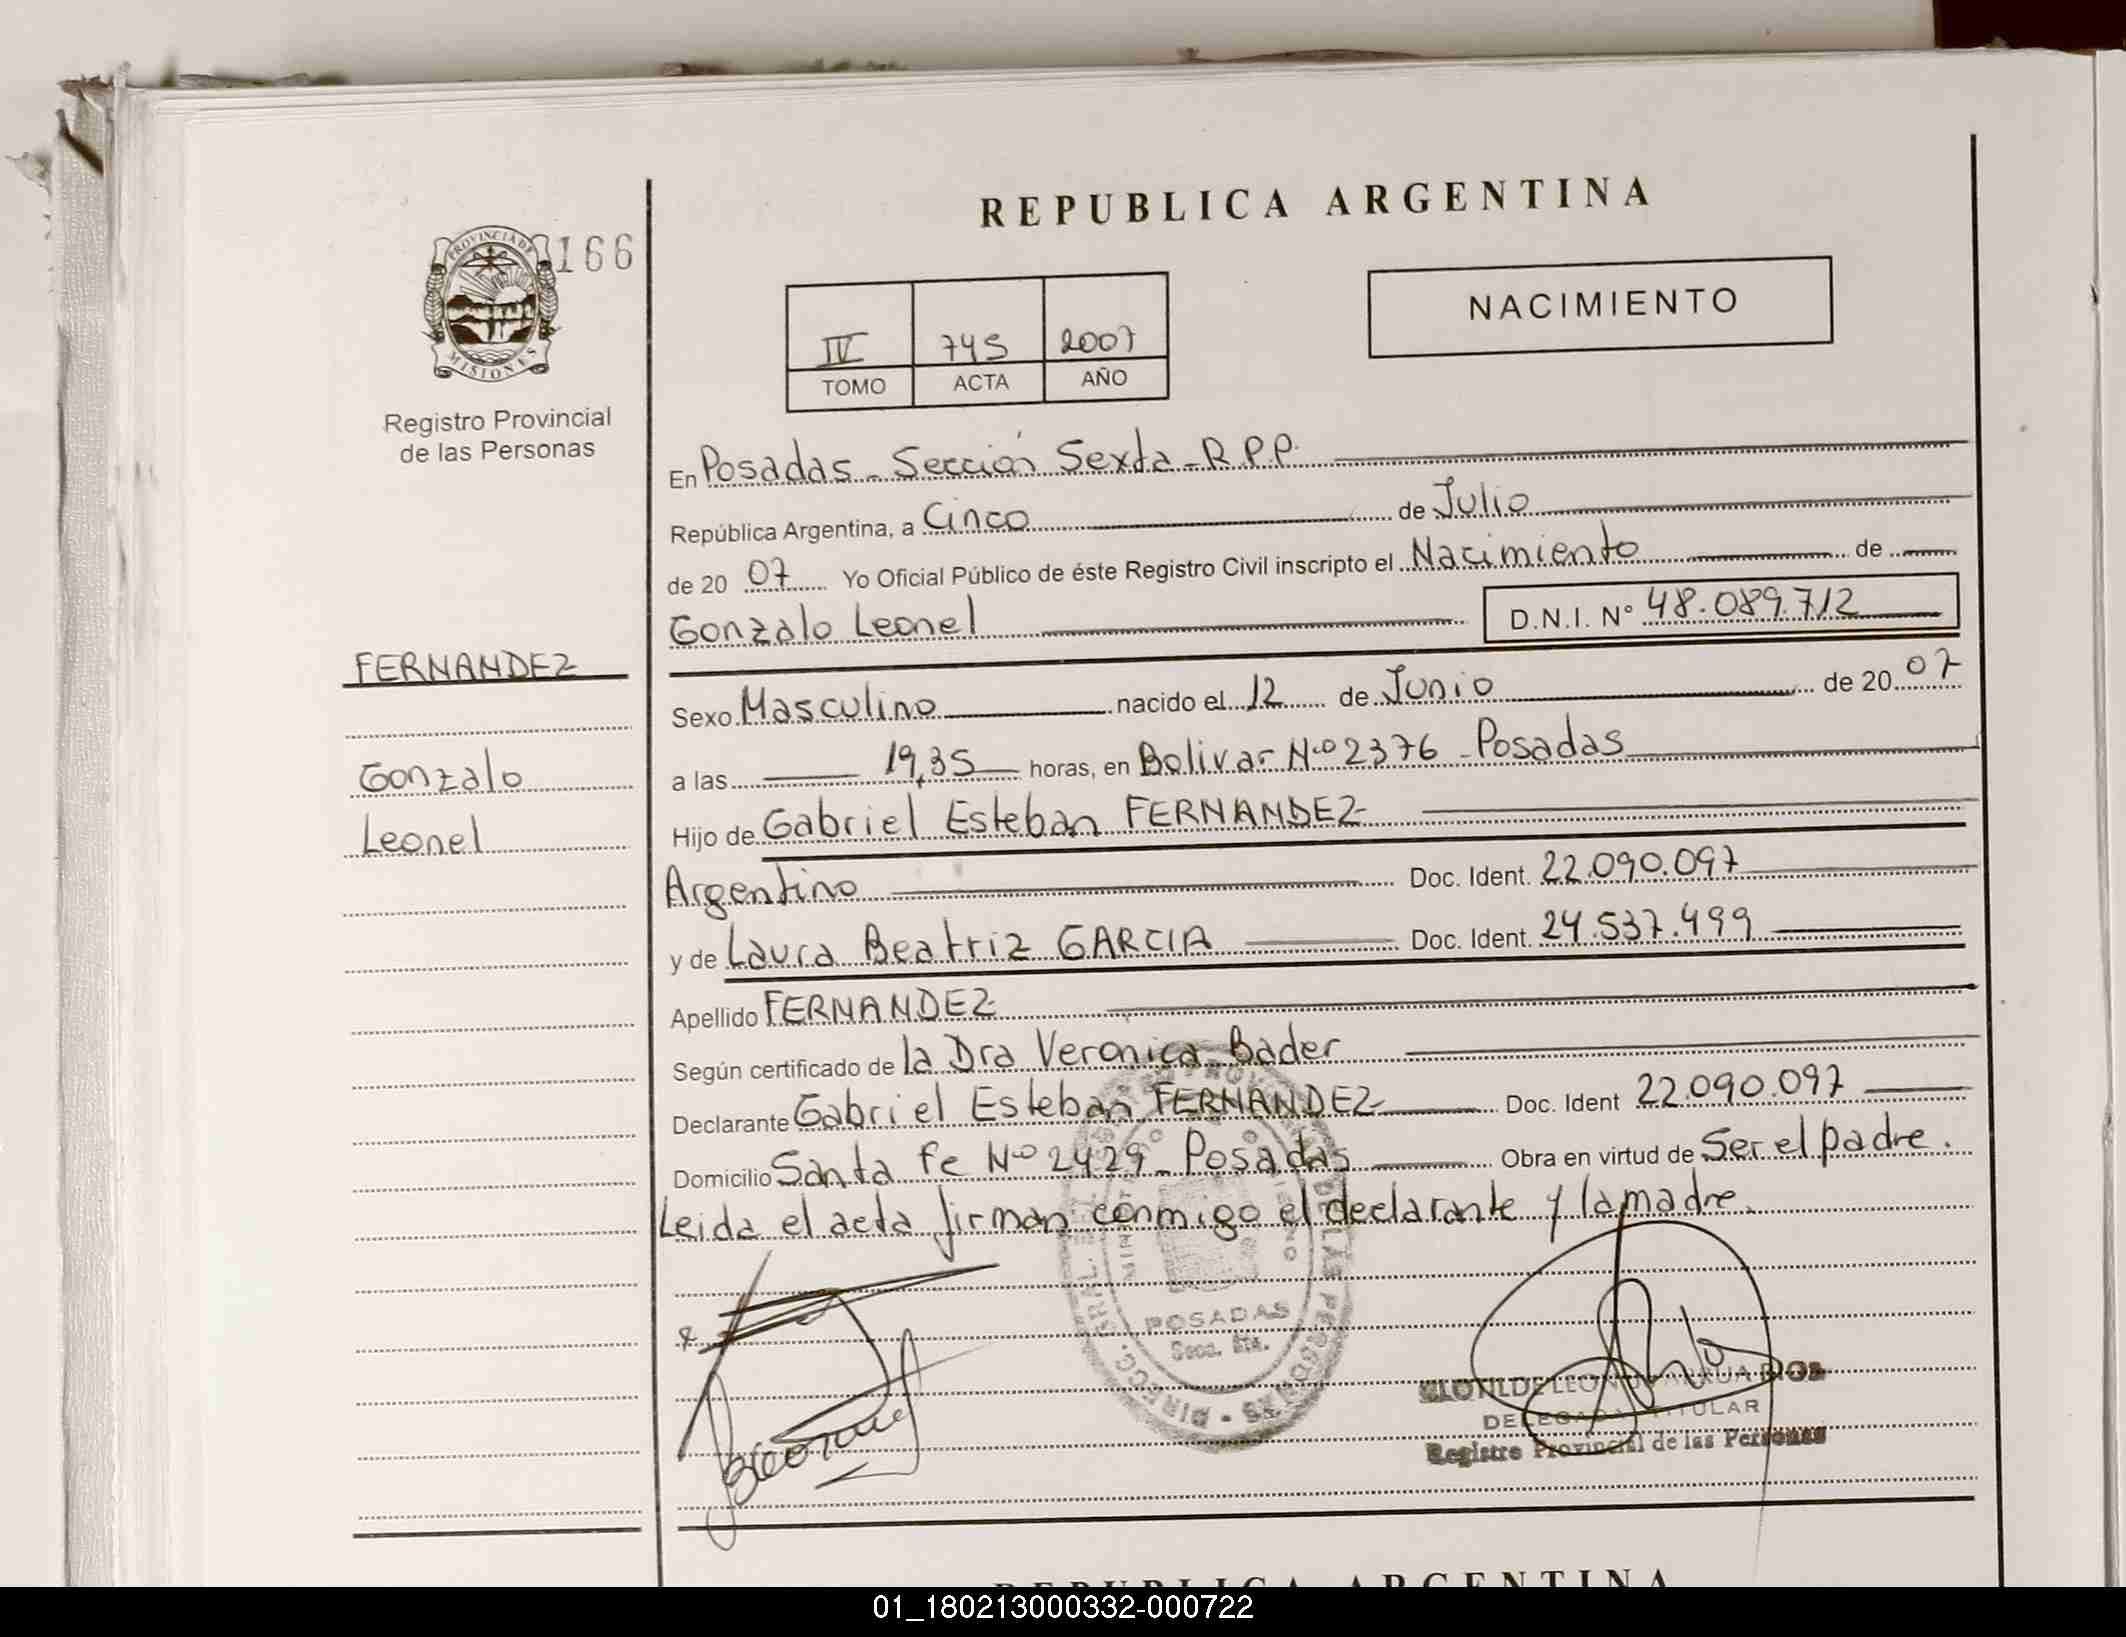 REPUBLICA ARGENTINA
PROVINCIA DE
MISIONES
166
NACIMIENTO
IV 745 2007
TOMO ACTA AÑO
Registro Provincial
de las Personas
En Posadas - Sección Sexta - R.P.P.
República Argentina, a Cinco de Julio
de 20 07 Yo Oficial Público de éste Registro Civil inscripto el Nacimiento de
Gonzalo Leonel D.N.I. N° 48.089.712
FERNANDEZ
Gonzalo
Leonel
Sexo Masculino nacido el 12 de Junio de 20 07
a las 19,35 horas, en Bolivar Nº 2376 - Posadas
Hijo de Gabriel Esteban FERNANDEZ
Argentino Doc. Ident. 22.090.097
y de Laura Beatriz GARCIA Doc. Ident. 24.537.499
Apellido FERNANDEZ
Según certificado de la Dra Veronica Bader
Declarante Gabriel Esteban FERNANDEZ Doc. Ident 22.090.097
Domicilio Santa Fe Nº 2429 - Posadas Obra en virtud de Ser el padre.
Leida el acta firman conmigo el declarante y la madre.
POSADAS
Secc. 6ta.
DELEGADA TITULAR
Registro Provincial de las Personas
REPUBLICA ARGENTINA
01_180213000332-000722